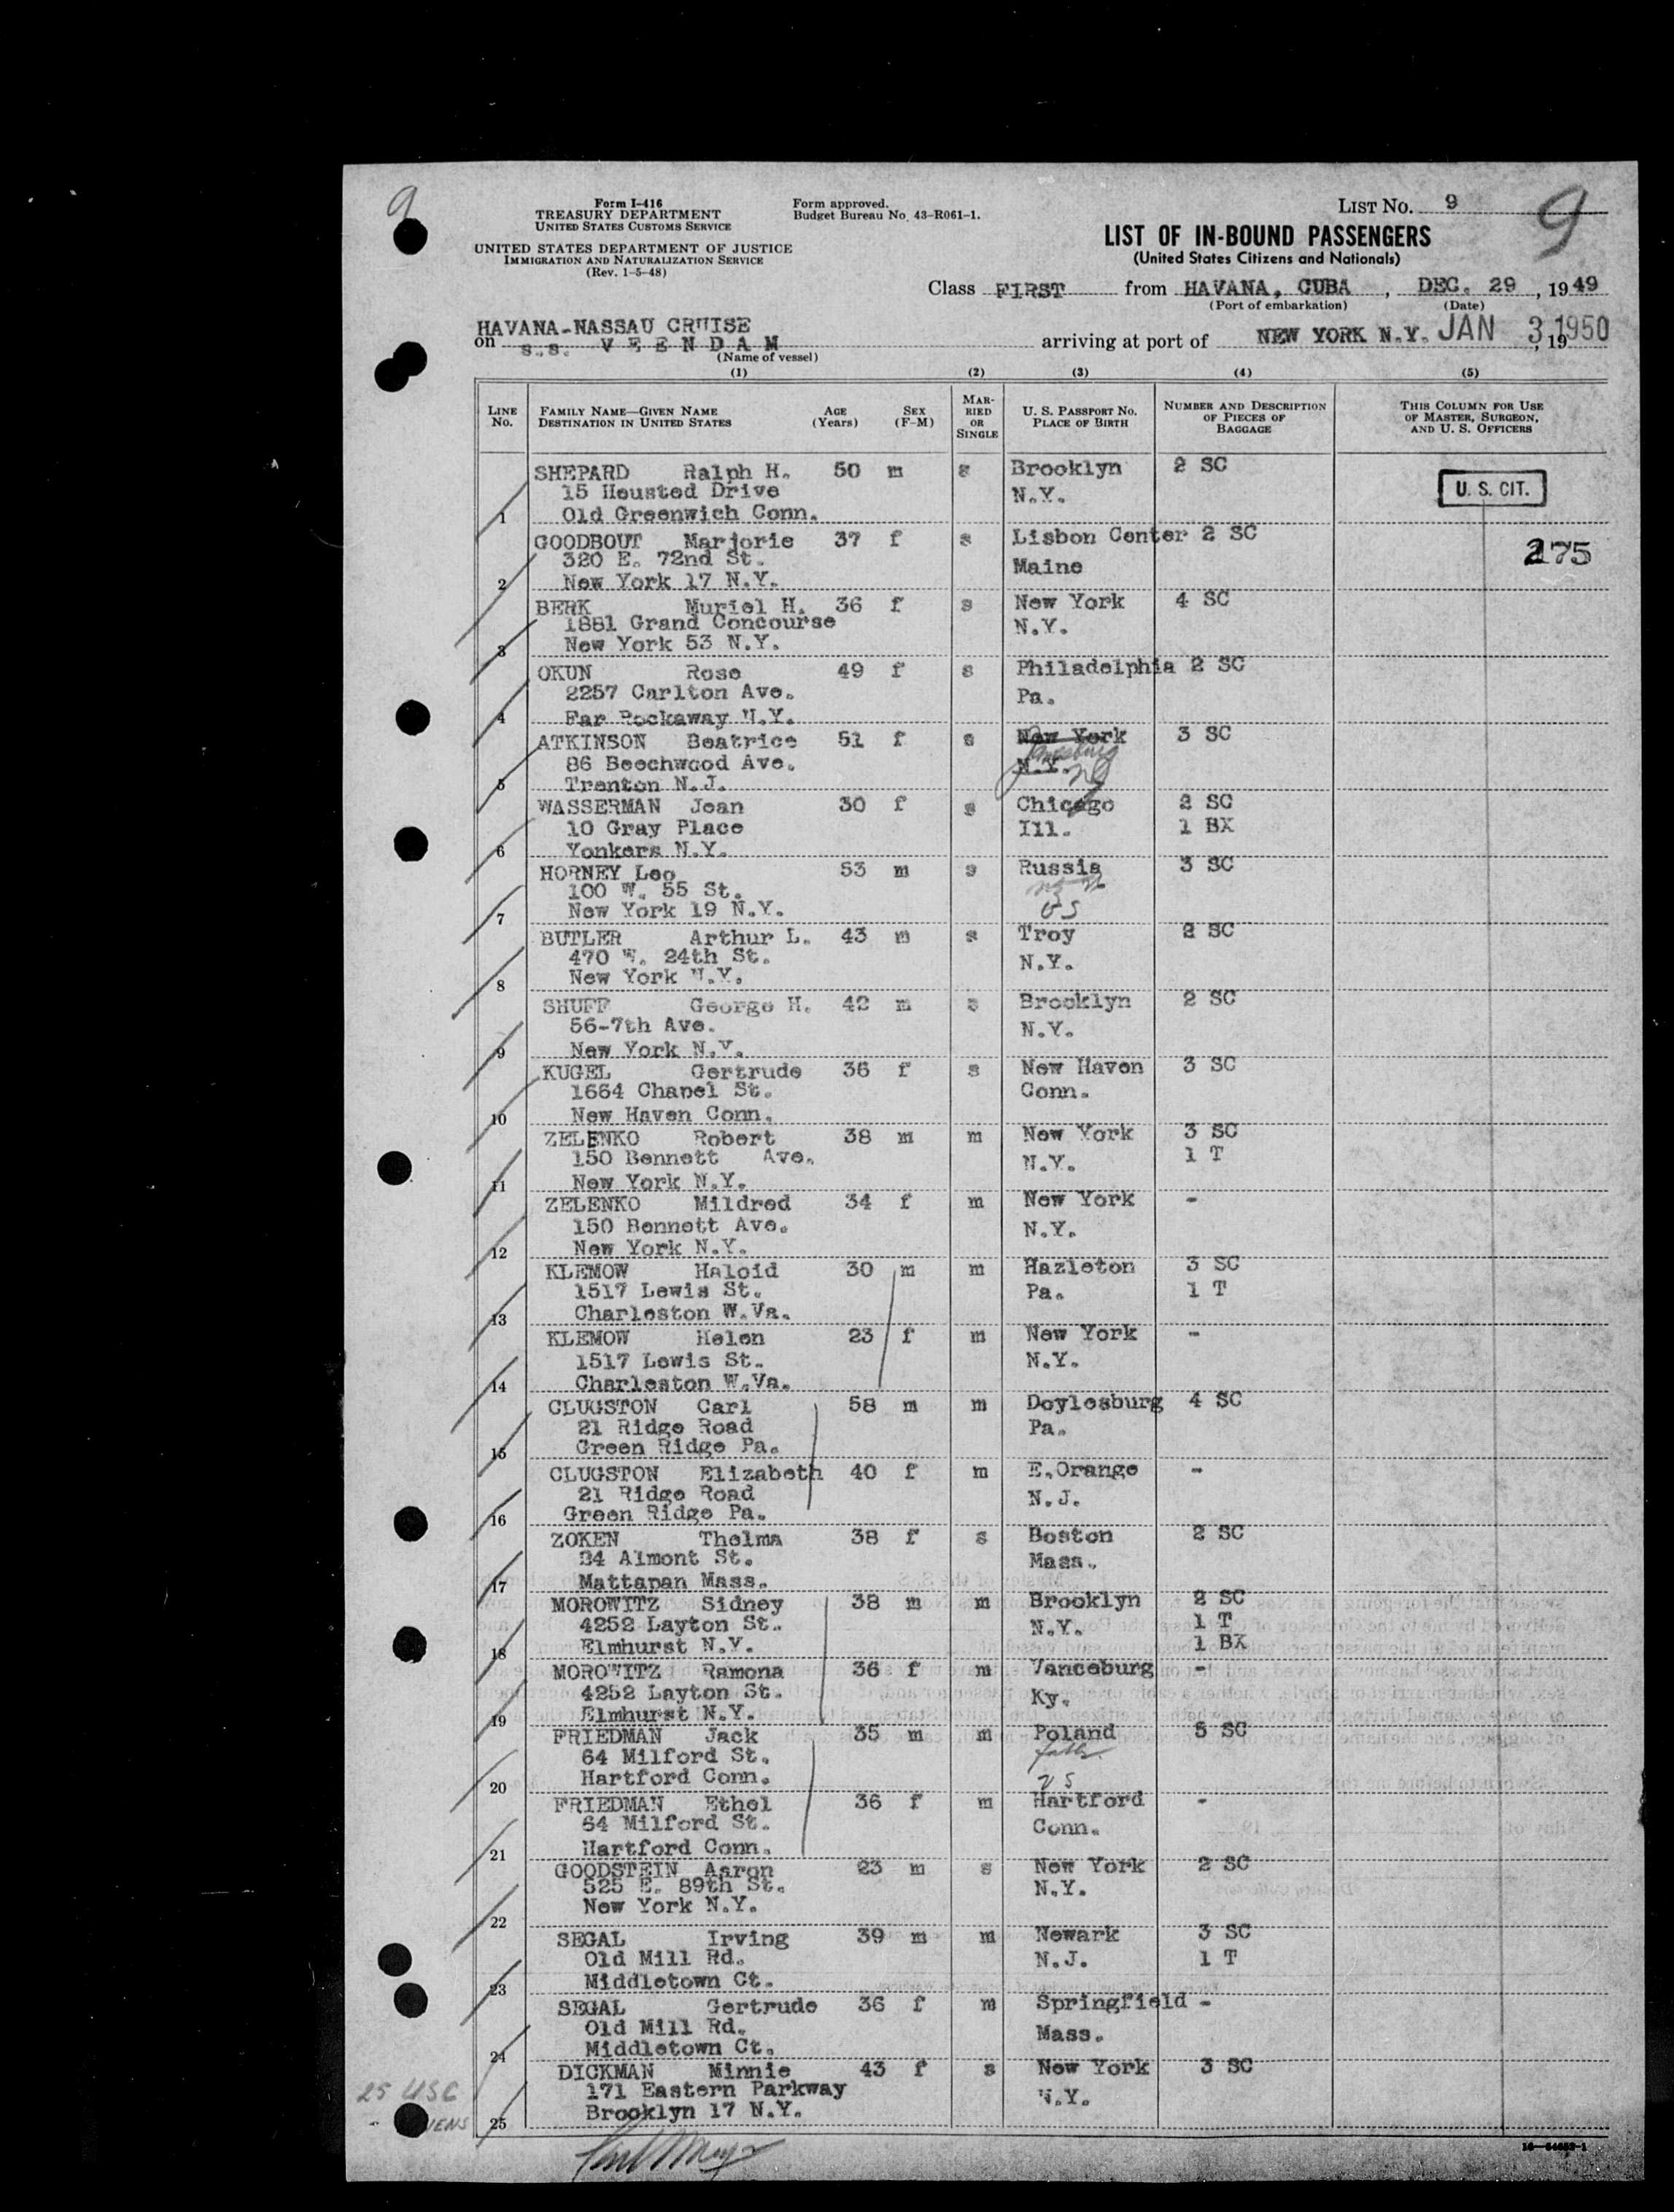 9
Form I-416
TREASURY DEPARTMENT
UNITED STATES CUSTOMS SERVICE
UNITED STATES DEPARTMENT OF JUSTICE
IMMIGRATION AND NATURALIZATION SERVICE
(Rev. 1-5-48)
Form approved.
Budget Bureau No. 43-R061-1.
LIST NO. 9
9
LIST OF IN-BOUND PASSENGERS
(United States Citizens and Nationals)
Class FIRST from HAVANA, CUBA, DEC. 29, 1949
(Port of embarkation) (Date)
HAVANA-NASSAU CRUISE
on S.S. VEENDAM arriving at port of NEW YORK N.Y. JAN 3, 191950
(Name of vessel)
(1) (2) (3) (4) (5)
LINE No. FAMILY NAME—GIVEN NAME DESTINATION IN UNITED STATES AGE (Years) SEX (F-M) MARRIED OR SINGLE U. S. PASSPORT NO. PLACE OF BIRTH NUMBER AND DESCRIPTION OF PIECES OF BAGGAGE THIS COLUMN FOR USE OF MASTER, SURGEON, AND U. S. OFFICERS
SHEPARD Ralph H. 50 m s Brooklyn 2 SC
15 Heusted Drive N.Y. U. S. CIT.
1 Old Greenwich Conn.
GOODBOUT Marjorie 37 f s Lisbon Center 2 SC
320 E. 72nd St. Maine 275
2 New York 17 N.Y.
BERK Muriel H. 36 f s New York 4 SC
1881 Grand Concourse N.Y.
3 New York 53 N.Y.
OKUN Rose 49 f s Philadelphia 2 SC
2257 Carlton Ave. Pa.
4 Far Rockaway N.Y.
ATKINSON Beatrice 51 f s New York 3 SC
86 Beechwood Ave. N.Y. Jamesburg NJ
5 Trenton N.J.
WASSERMAN Jean 30 f s Chicago 2 SC
10 Gray Place Ill. 1 BX
6 Yonkers N.Y.
HORNEY Leo 53 m s Russia 3 SC
100 W. 55 St.
7 New York 19 N.Y. US
BUTLER Arthur L. 43 m s Troy 2 SC
470 W. 24th St. N.Y.
8 New York N.Y.
SHUFF George H. 42 m s Brooklyn 2 SC
56-7th Ave. N.Y.
9 New York N.Y.
KUGEL Gertrude 36 f s New Haven 3 SC
1664 Chapel St. Conn.
10 New Haven Conn.
ZELENKO Robert 38 m m New York 3 SC
150 Bennett Ave. N.Y. 1 T
11 New York N.Y.
ZELENKO Mildred 34 f m New York -
150 Bennett Ave. N.Y.
12 New York N.Y.
KLEMOW Haloid 30 m m Hazleton 3 SC
1517 Lewis St. Pa. 1 T
13 Charleston W.Va.
KLEMOW Helen 23 f m New York -
1517 Lewis St. N.Y.
14 Charleston W.Va.
CLUGSTON Carl 58 m m Doylesburg 4 SC
21 Ridge Road Pa.
15 Green Ridge Pa.
CLUGSTON Elizabeth 40 f m E.Orange -
21 Ridge Road N.J.
16 Green Ridge Pa.
ZOKEN Thelma 38 f s Boston 2 SC
34 Almont St. Mass.
17 Mattapan Mass.
MOROWITZ Sidney 38 m m Brooklyn 2 SC
4252 Layton St. N.Y. 1 T
18 Elmhurst N.Y. 1 BX
MOROWITZ Ramona 36 f m Vanceburg -
4252 Layton St. Ky.
19 Elmhurst N.Y.
FRIEDMAN Jack 35 m m Poland 5 SC
64 Milford St.
20 Hartford Conn. US
FRIEDMAN Ethel 36 f m Hartford -
64 Milford St. Conn.
21 Hartford Conn.
GOODSTEIN Aaron 23 m s New York 2 SC
525 E. 89th St. N.Y.
22 New York N.Y.
SEGAL Irving 39 m m Newark 3 SC
Old Mill Rd. N.J. 1 T
23 Middletown Ct.
SEGAL Gertrude 36 f m Springfield -
Old Mill Rd. Mass.
24 Middletown Ct.
DICKMAN Minnie 43 f s New York 3 SC
171 Eastern Parkway N.Y.
25 Brooklyn 17 N.Y.
25 USC